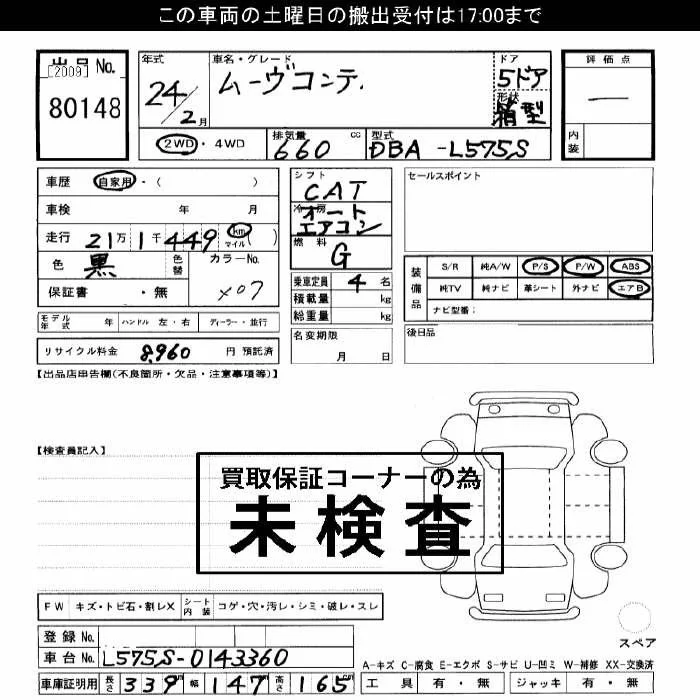 この車両の土曜日の搬出受付は17:00まで
出品 No.
[2009]
80148
年式
24/2月
車名・グレード
ムーヴコンテ.
ドア
5ドア
形状
箱型
評価点
—
内装
2WD・4WD
排気量 660 cc
型式 DBA-L575S
車歴 自家用・( )
車検 年 月
走行 21万1千449 km マイル ( )
色 黒 色替 カラーNo. X07
保証書 ・無
シフト
CAT
冷房
オートエアコン
燃料
G
乗車定員 4 名
積載量 kg
総重量 kg
名変期限
月 日
セールスポイント
装備品
S/R 純A/W P/S P/W ABS
純TV 純ナビ 革シート 外ナビ エアB
ナビ型番:
後日品
モデル年式 年 ハンドル 左・右 ディーラー・並行
リサイクル料金 8,960 円 預託済
【出品店申告欄(不良箇所・欠品・注意事項等)】
【検査員記入】
買取保証コーナーの為
未検査
FW キズ・トビ石・割レX シート内装 コゲ・穴・汚レ・シミ・破レ・スレ
登録 No.
車台 No. L575S-0143360
車庫証明用 長さ 339 cm 幅 147 cm 高さ 165 cm
スペア
A-キズ C-腐食 E-エクボ S-サビ U-凹ミ W-補修 XX-交換済
工具 有・無 ジャッキ 有・無